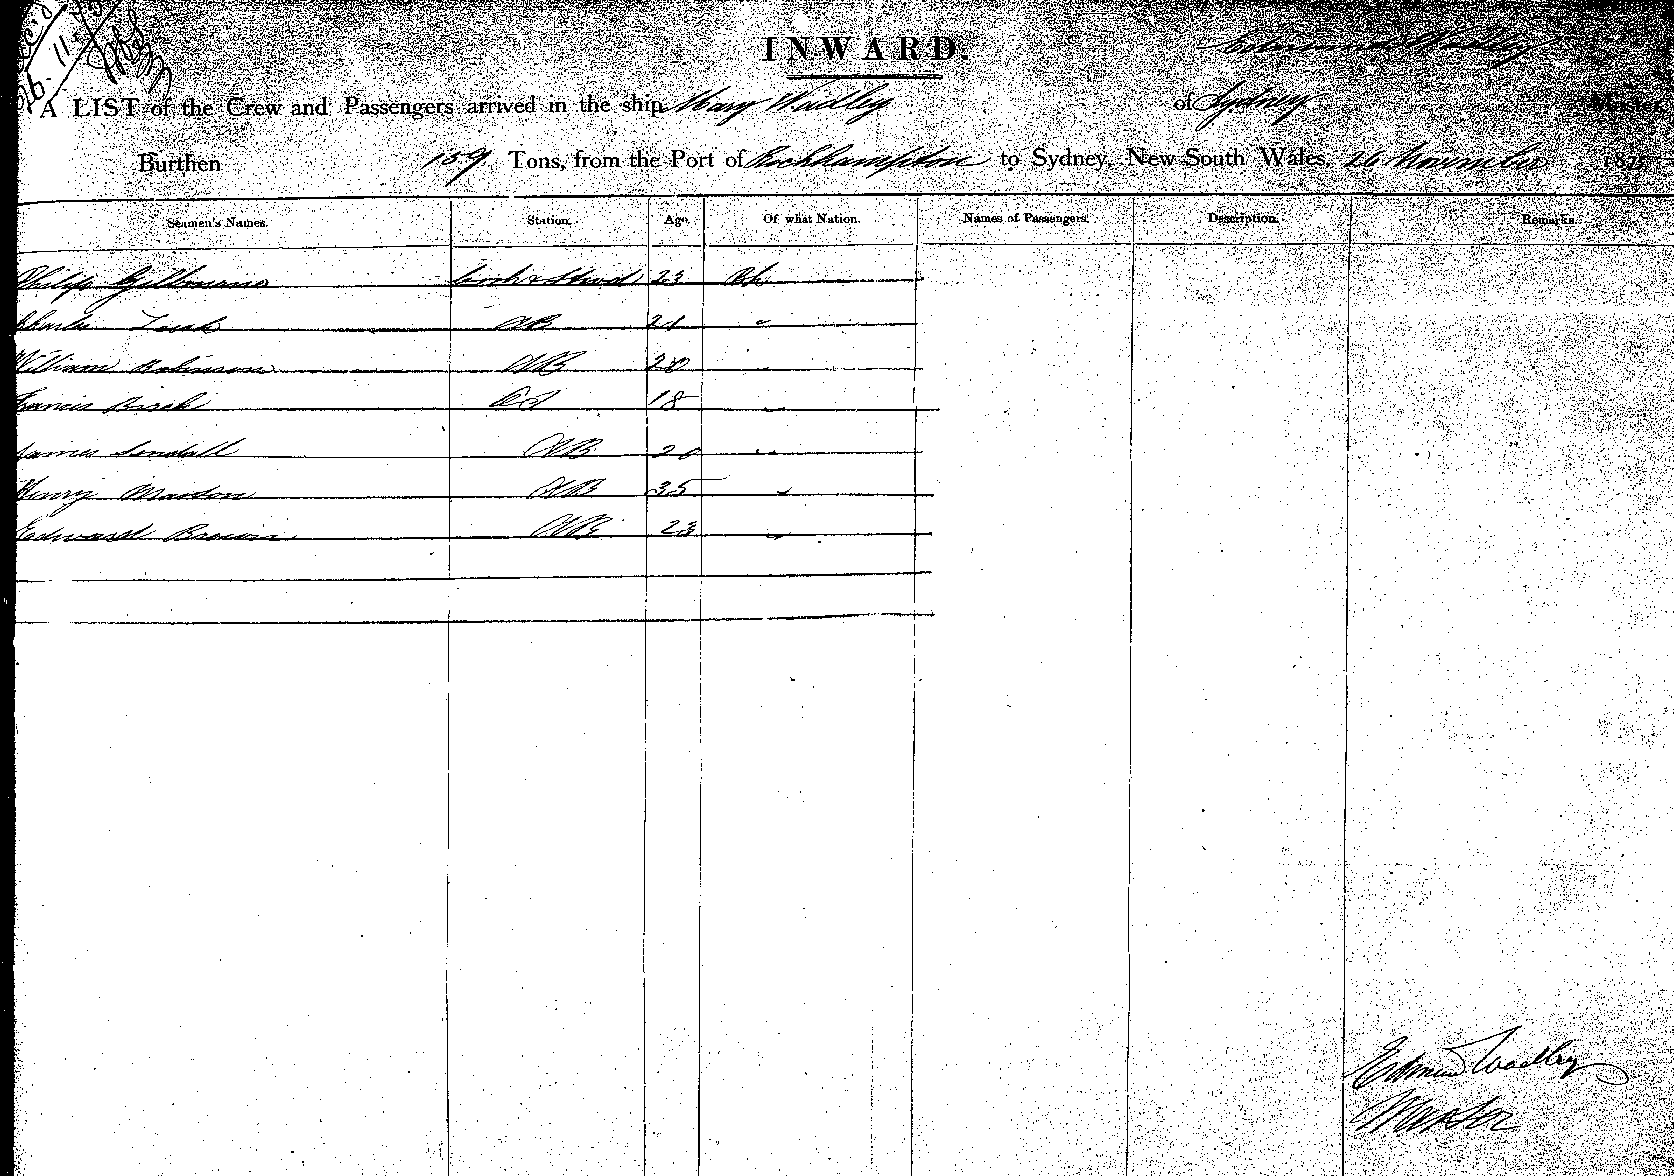 INWARD.
A LIST of the Crew and Passengers arrived in the ship Mary Wadley of Sydney Master
Burthen 159 Tons, from the Port of Rockhampton to Sydney, New South Wales, 26 November 187
Seamen's Names. Station. Age. Of what Nation. Names of Passengers. Description. Remarks.
Philip 23
Charles AB 21 "
William Robinson AB 20 "
Francis 18 "
James Sendall AB "
Henry AB 35 "
Edward Brown AB 23 "
Wadley
Master